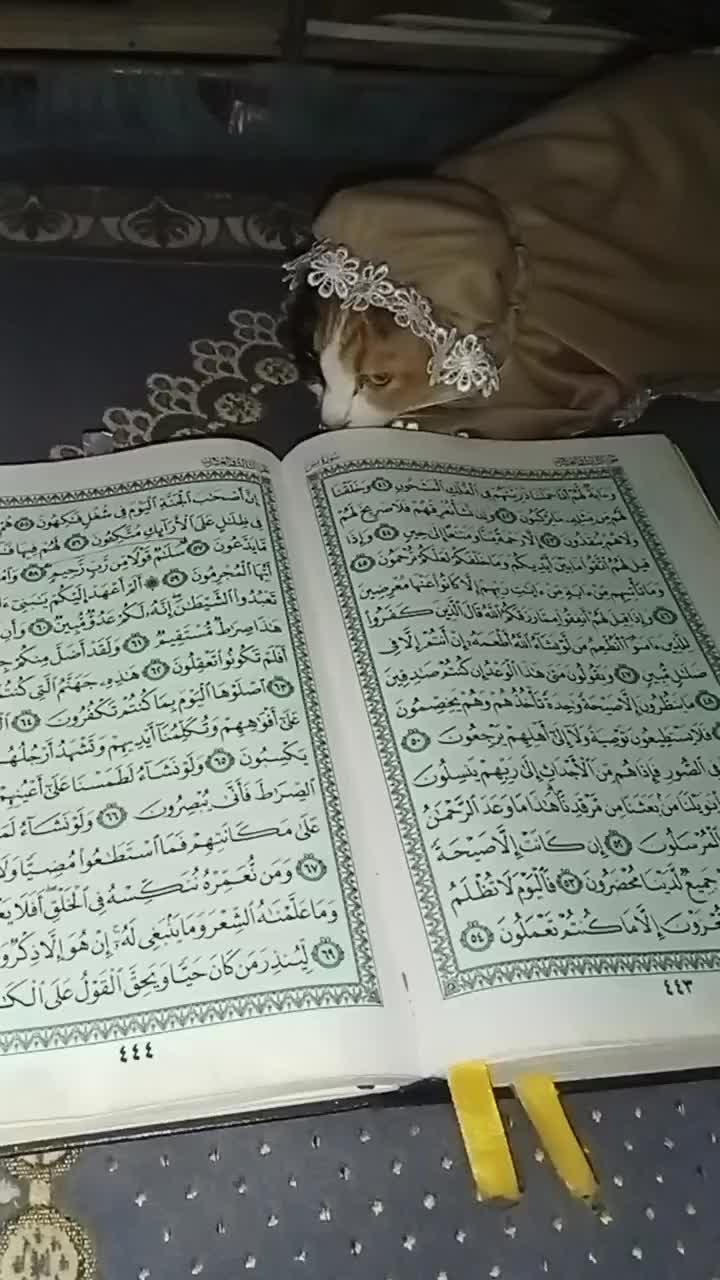 وَءَايَةٌ لَّهُمْ أَنَّا حَمَلْنَا ذُرِّيَّتَهُمْ فِى ٱلْفُلْكِ ٱلْمَشْحُونِ ٤١ وَخَلَقْنَا
لَهُم مِّن مِّثْلِهِۦ مَا يَرْكَبُونَ ٤٢ وَإِن نَّشَأْ نُغْرِقْهُمْ فَلَا صَرِيخَ لَهُمْ
وَلَا هُمْ يُنقَذُونَ ٤٣ إِلَّا رَحْمَةً مِّنَّا وَمَتَـٰعًا إِلَىٰ حِينٍ ٤٤ وَإِذَا
قِيلَ لَهُمُ ٱتَّقُوا۟ مَا بَيْنَ أَيْدِيكُمْ وَمَا خَلْفَكُمْ لَعَلَّكُمْ تُرْحَمُونَ ٤٥
وَمَا تَأْتِيهِم مِّنْ ءَايَةٍ مِّنْ ءَايَـٰتِ رَبِّهِمْ إِلَّا كَانُوا۟ عَنْهَا مُعْرِضِينَ
٤٦ وَإِذَا قِيلَ لَهُمْ أَنفِقُوا۟ مِمَّا رَزَقَكُمُ ٱللَّهُ قَالَ ٱلَّذِينَ كَفَرُوا۟
لِلَّذِينَ ءَامَنُوٓا۟ أَنُطْعِمُ مَن لَّوْ يَشَآءُ ٱللَّهُ أَطْعَمَهُۥٓ إِنْ أَنتُمْ إِلَّا فِى
ضَلَـٰلٍ مُّبِينٍ ٤٧ وَيَقُولُونَ مَتَىٰ هَـٰذَا ٱلْوَعْدُ إِن كُنتُمْ صَـٰدِقِينَ
٤٨ مَا يَنظُرُونَ إِلَّا صَيْحَةً وَٰحِدَةً تَأْخُذُهُمْ وَهُمْ يَخِصِّمُونَ
فَلَا يَسْتَطِيعُونَ تَوْصِيَةً وَلَآ إِلَىٰٓ أَهْلِهِمْ يَرْجِعُونَ ٥٠
فِى ٱلصُّورِ فَإِذَا هُم مِّنَ ٱلْأَجْدَاثِ إِلَىٰ رَبِّهِمْ يَنسِلُونَ
يَـٰوَيْلَنَا مَنۢ بَعَثَنَا مِن مَّرْقَدِنَا هَـٰذَا مَا وَعَدَ ٱلرَّحْمَـٰنُ
ٱلْمُرْسَلُونَ ٥٢ إِن كَانَتْ إِلَّا صَيْحَةً
جَمِيعٌ لَّدَيْنَا مُحْضَرُونَ ٥٣ فَٱلْيَوْمَ لَا تُظْلَمُ
تُجْزَوْنَ إِلَّا مَا كُنتُمْ تَعْمَلُونَ ٥٤
٤٤٣
إِنَّ أَصْحَـٰبَ ٱلْجَنَّةِ ٱلْيَوْمَ فِى شُغُلٍ فَـٰكِهُونَ ٥٥ هُمْ
فِى ظِلَـٰلٍ عَلَى ٱلْأَرَآئِكِ مُتَّكِـُٔونَ ٥٦ لَهُمْ فِيهَا
مَّا يَدَّعُونَ ٥٧ سَلَـٰمٌ قَوْلًا مِّن رَّبٍّ رَّحِيمٍ ٥٨
أَيُّهَا ٱلْمُجْرِمُونَ ٥٩ أَلَمْ أَعْهَدْ إِلَيْكُمْ يَـٰبَنِىٓ
تَعْبُدُوا۟ ٱلشَّيْطَـٰنَ إِنَّهُۥ لَكُمْ عَدُوٌّ مُّبِينٌ ٦٠ وَأَنِ
هَـٰذَا صِرَٰطٌ مُّسْتَقِيمٌ ٦١ وَلَقَدْ أَضَلَّ مِنكُمْ
أَفَلَمْ تَكُونُوا۟ تَعْقِلُونَ ٦٢ هَـٰذِهِۦ جَهَنَّمُ ٱلَّتِى كُنتُمْ
٦٣ ٱصْلَوْهَا ٱلْيَوْمَ بِمَا كُنتُمْ تَكْفُرُونَ ٦٤
عَلَىٰٓ أَفْوَٰهِهِمْ وَتُكَلِّمُنَآ أَيْدِيهِمْ وَتَشْهَدُ أَرْجُلُهُم
يَكْسِبُونَ ٦٥ وَلَوْ نَشَآءُ لَطَمَسْنَا عَلَىٰٓ أَعْيُنِهِمْ
ٱلصِّرَٰطَ فَأَنَّىٰ يُبْصِرُونَ ٦٦ وَلَوْ نَشَآءُ
عَلَىٰ مَكَانَتِهِمْ فَمَا ٱسْتَطَـٰعُوا۟ مُضِيًّا وَلَا
٦٧ وَمَن نُّعَمِّرْهُ نُنَكِّسْهُ فِى ٱلْخَلْقِ أَفَلَا
وَمَا عَلَّمْنَـٰهُ ٱلشِّعْرَ وَمَا يَنۢبَغِى لَهُۥٓ إِنْ هُوَ إِلَّا ذِكْرٌ
٦٩ لِّيُنذِرَ مَن كَانَ حَيًّا وَيَحِقَّ ٱلْقَوْلُ عَلَى
٤٤٤